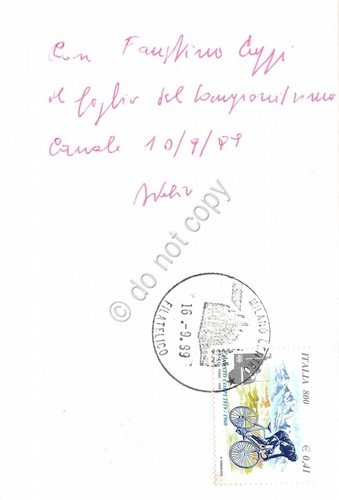 Con Faustino Coppi
il figlio del Campionissimo
Canale 10/9/99
© do not copy
MILANO CENTRO
16.-9.99
FILATELICO
ITALIA 800
€ 0,41